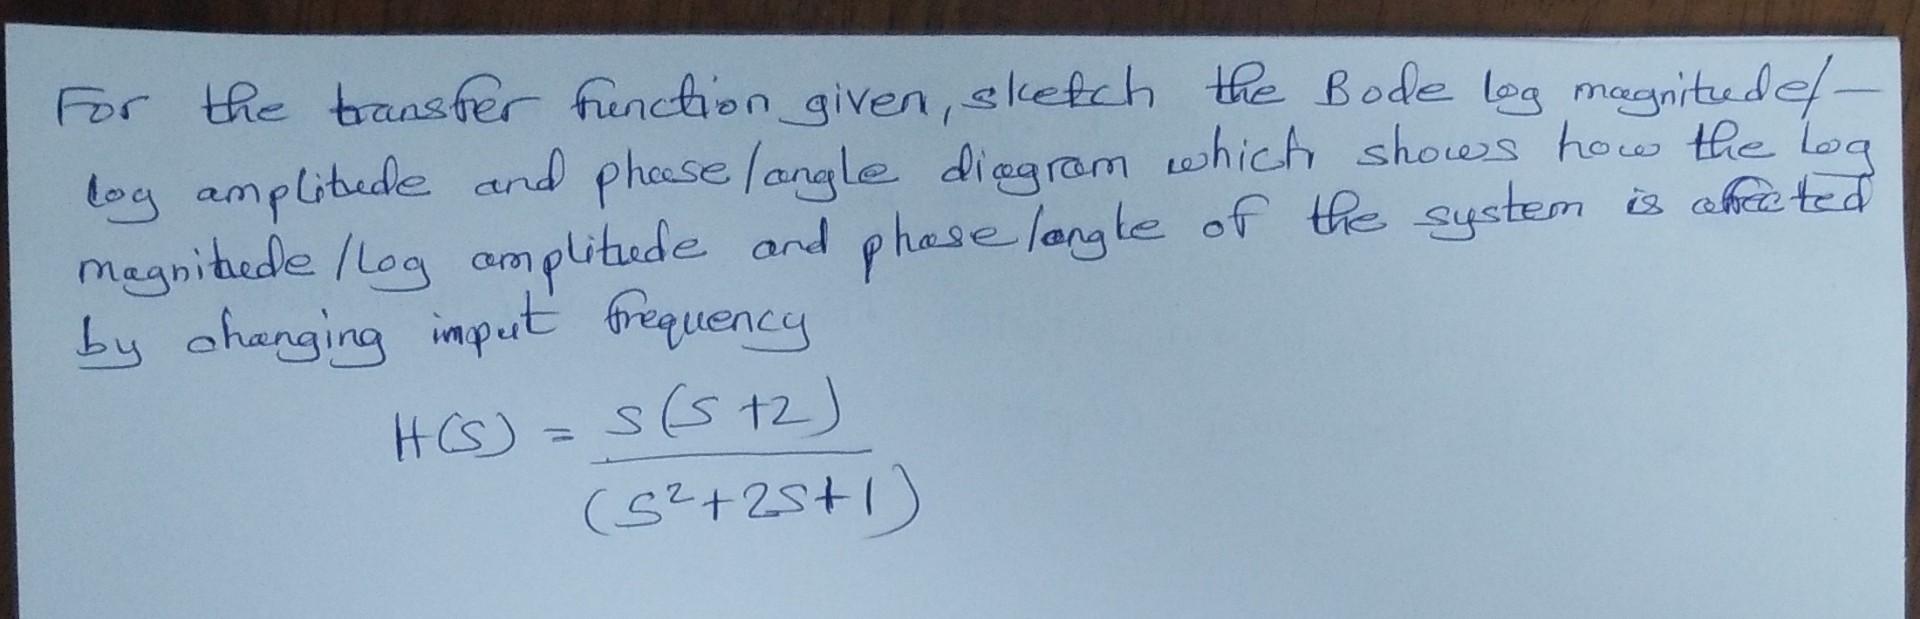 For the transfer function given, sketch the Bode log magnitude/-
log amplitude and phase/angle diagram which shows how the Log
magnitude/Log amplitude and phase/angle of the system is affected
by changing input frequency
H(S) = s(s+2)
(s²+2s+1)